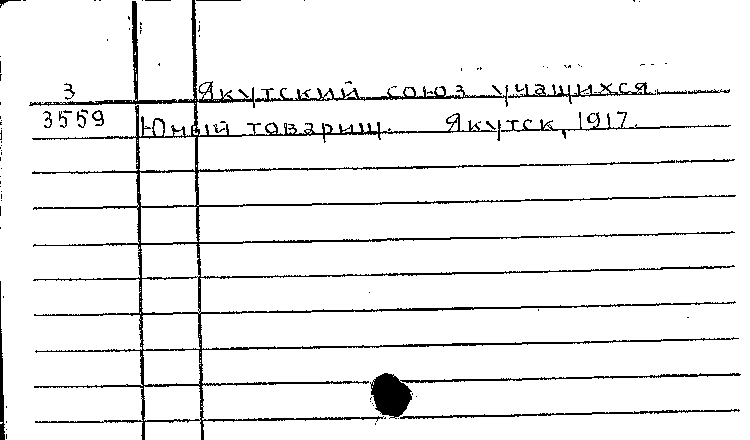 3 Якутский союз учащихся.
3559 Юный товарищ. Якутск, 1917.